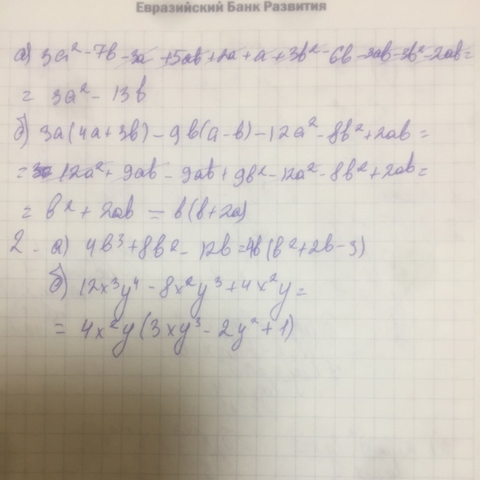 Евразийский Банк Развития
а) 3a² - 7b - 3a + 5ab + 2a + a + 3b² - 6b - 3ab - 3b² - 2ab =
= 3a² - 13b
б) 3a(4a+3b) - 9b(a-b) - 12a² - 8b² + 2ab =
= 12a² + 9ab - 9ab + 9b² - 12a² - 8b² + 2ab =
= b² + 2ab = b(b+2a)
2. а) 4b³ + 8b² - 12b = 4b(b² + 2b - 3)
б) 12x³y⁴ - 8x²y³ + 4x²y =
= 4x²y(3xy³ - 2y² + 1)